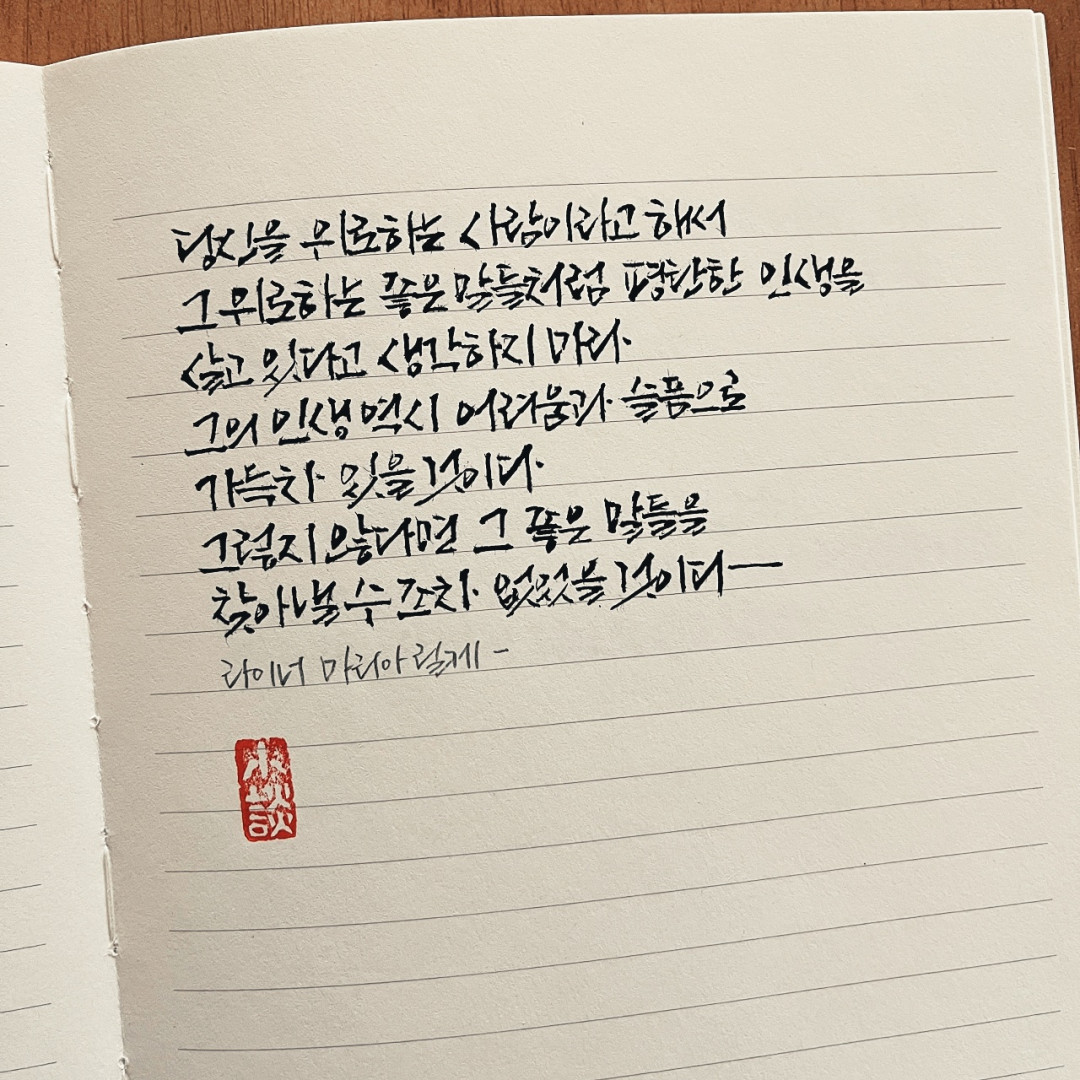 당신을 위로하는 사람이라고 해서
그 위로하는 좋은 말들처럼 평탄한 인생을
살고 있다고 생각하지 마라.
그의 인생 역시 어려움과 슬픔으로
가득차 있을 것이다.
그렇지 않다면 그 좋은 말들을
찾아낼 수 조차 없었을 것이다—
라이너 마리아 릴케 -
談